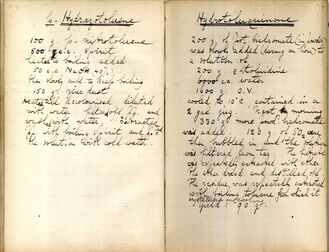 o. Hydrazotoluene
100 g. o. nitrotoluene
500 c.c. spirit
heated to boiling added
50 c.c. NaOH 40%.
then slowly and to keep boiling
150 g. zinc dust
Heated till decolourised diluted
with water, filtered and
washed with water. Extracted
with boiling spirit and
the solution with cold water.
Hydrotoluquinone
200 g. of Sod. bichromate (in powder)
was slowly added (during an hour) to
a solution of
200 g. o-toluidine
6000 c.c. water
1600 g. O.V.
cooled to 10°C contained in a
2 gal jug. Next morning
330 g. more sod. bichromate
was added. 120 g. of SO2 was
then bubbled in and the solution
was filtered from tar. The filtrate
was repeatedly extracted with ether
the ether dried and distilled off.
The residue was repeatedly extracted
with boiling toluene from which it
crystallises on cooling.
yield: 90 g.